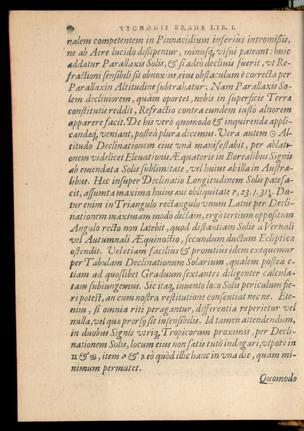 TYCHONIS BRAHE LIB. I.
nalem competentem in Pinnacidium inferius intromissis,
ne ab Aere lucido dissipentur, minusq; visui pateant: huic
addatur Parallaxis Solis, & si adeo declivis fuerit, vt Re-
fractioni sensibili sit obnoxius, eius obstaculum è correcta per
Parallaxin Altitudine subtrahatur. Nam Parallaxis So-
lem decliviorem, quàm oportet, nobis in superficie Terræ
constitutis reddit, Refractio contra eundem iusto altiorem
apparere facit. De his verò quomodo & inquirenda appli-
candaq; veniant, posteà plura dicemus. Vera autem ☉ Al-
titudo Declinationem eius unà manifestabit, per ablati-
onem videlicet Elevationis Æquatoris in Borealibus Signis
ab emendata Solis sublimitate, vel huius ab illa in Austra-
libus. Hæc insuper Declinatio Longitudinem Solis patefa-
cit, assumta maxima huius ævi obliquitate P, 23. I. 31½. Da-
tur enim in Triangulo rectangulo vnum Latus per Decli-
nationem maximam modo dictam, ergò tertium oppositum
Angulo recto non latebit, quod distantiam Solis a Vernali
vel Autumnali Æquinoctio, secundum ductum Eclipticæ
ostendit. Vel etiam facilius & promtius idem exequemur
per Tabulam Declinationum Solarium, qualem postea e-
tiam ad quoslibet Graduum sextantes diligenter calcula-
tam subiungemus. Sic itaq; invento loco Solis periculum fie-
ri potest, an cum nostra restitutione consentiat nec ne. Ete-
nim, si omnia ritè peragantur, differentia reperietur vel
nulla, vel quæ prorsus sit insensibilis. Id tamen attendendum,
in duobus Signis utriq; Tropicorum proximis, per Decli-
nationem Solis, locum eius non satis tutò indagari, vtpote in
♊ & ♋, item ♐ & ♑ eò quòd illic hanc in vna die, quàm mi-
nimum permutet.
Quomodo